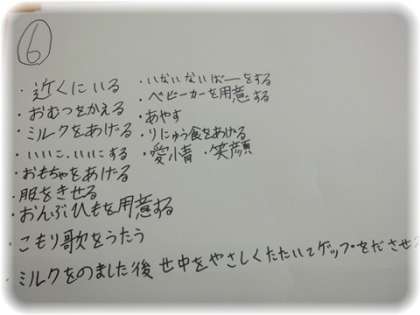 ⑥
・近くにいる
・おむつをかえる
・ミルクをあげる
・いいこ、いいにする
・おもちゃをあげる
・服をきせる
・おんぶひもを用意する
・こもり歌をうたう
・ミルクをのました後せ中をやさしくたたいてゲップをださせ
・いないないばーをする
・ベビーカーを用意する
・あやす
・りにゅう食をあげる
・愛情 ・笑顔